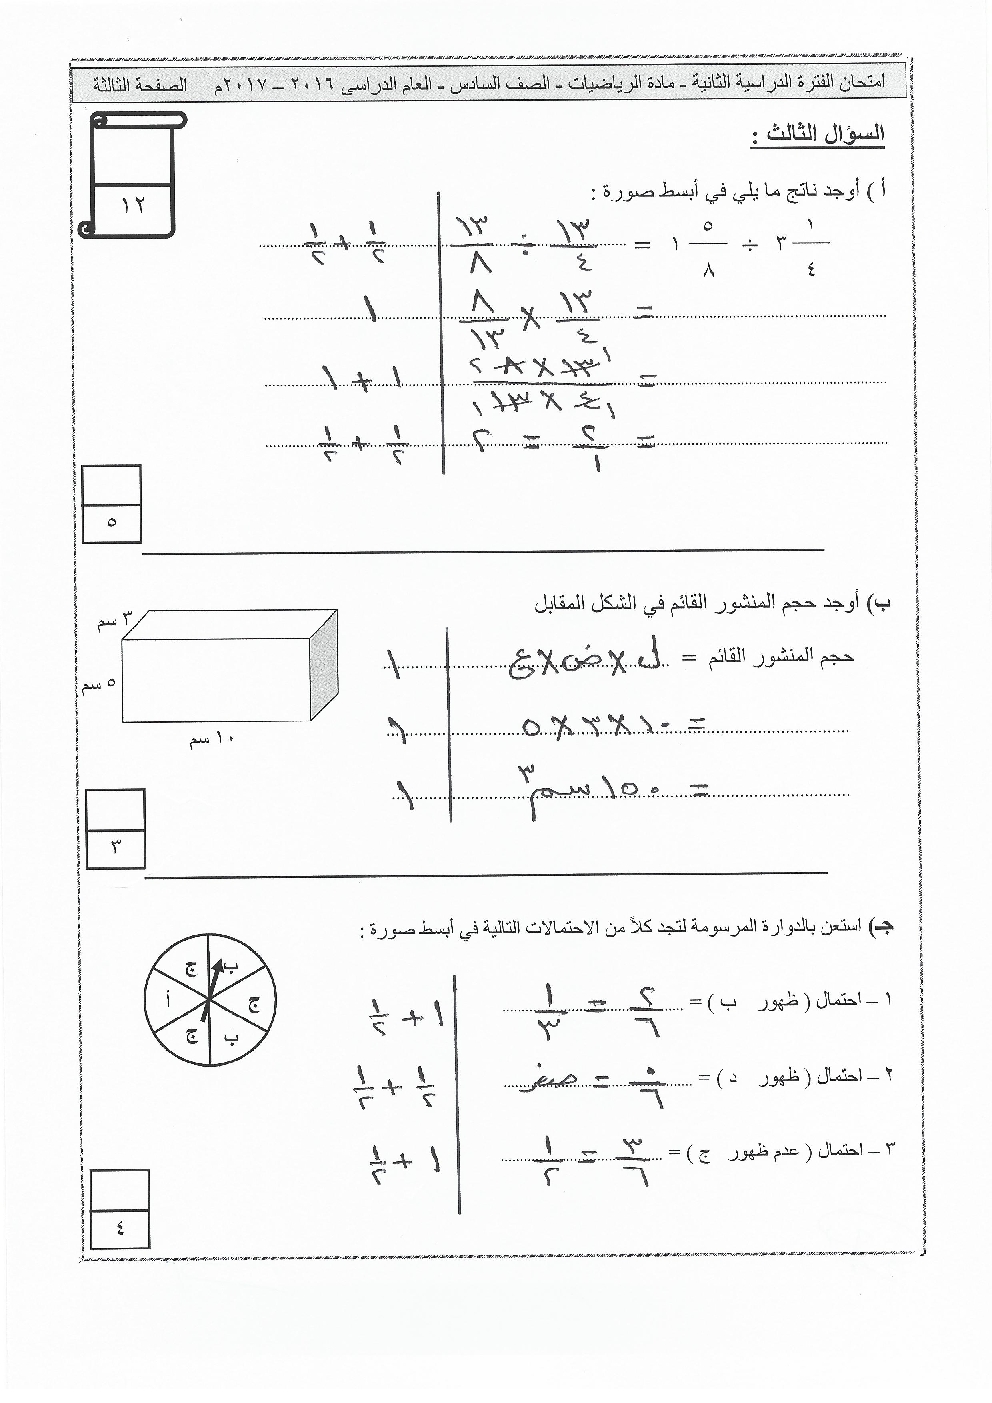 امتحان الفترة الدراسية الثانية - مادة الرياضيات - الصف السادس - العام الدراسي ٢٠١٦ – ٢٠١٧م الصفحة الثالثة
السؤال الثالث :
١٢
أ ) أوجد ناتج ما يلي في أبسط صورة :
٣ ١/٤ ÷ ١ ٥/٨ = ١٣/٤ ÷ ١٣/٨ ١/٢ + ١/٢
= ١٣/٤ × ٨/١٣ ١
= ١٣ ١ × ٨ ٢ / ٤ ١ × ١٣ ١ ١ + ١
= ٢/١ = ٢ ١/٢ + ١/٢
٥
ب) أوجد حجم المنشور القائم في الشكل المقابل
٣ سم
٥ سم
١٠ سم
حجم المنشور القائم = ل × ض × ع ١
= ١٠ × ٣ × ٥ ١
= ١٥٠ سم٣ ١
٣
جـ) استعن بالدوارة المرسومة لتجد كلاً من الاحتمالات التالية في أبسط صورة :
ب
ج
ب
ج
أ
ج
١ – احتمال ( ظهور ب ) = ٢/٦ = ١/٣ ١ + ١/٢
٢ – احتمال ( ظهور د ) = ٠/٦ = صفر ١/٢ + ١/٢
٣ – احتمال ( عدم ظهور ج ) = ٣/٦ = ١/٢ ١ + ١/٢
٤